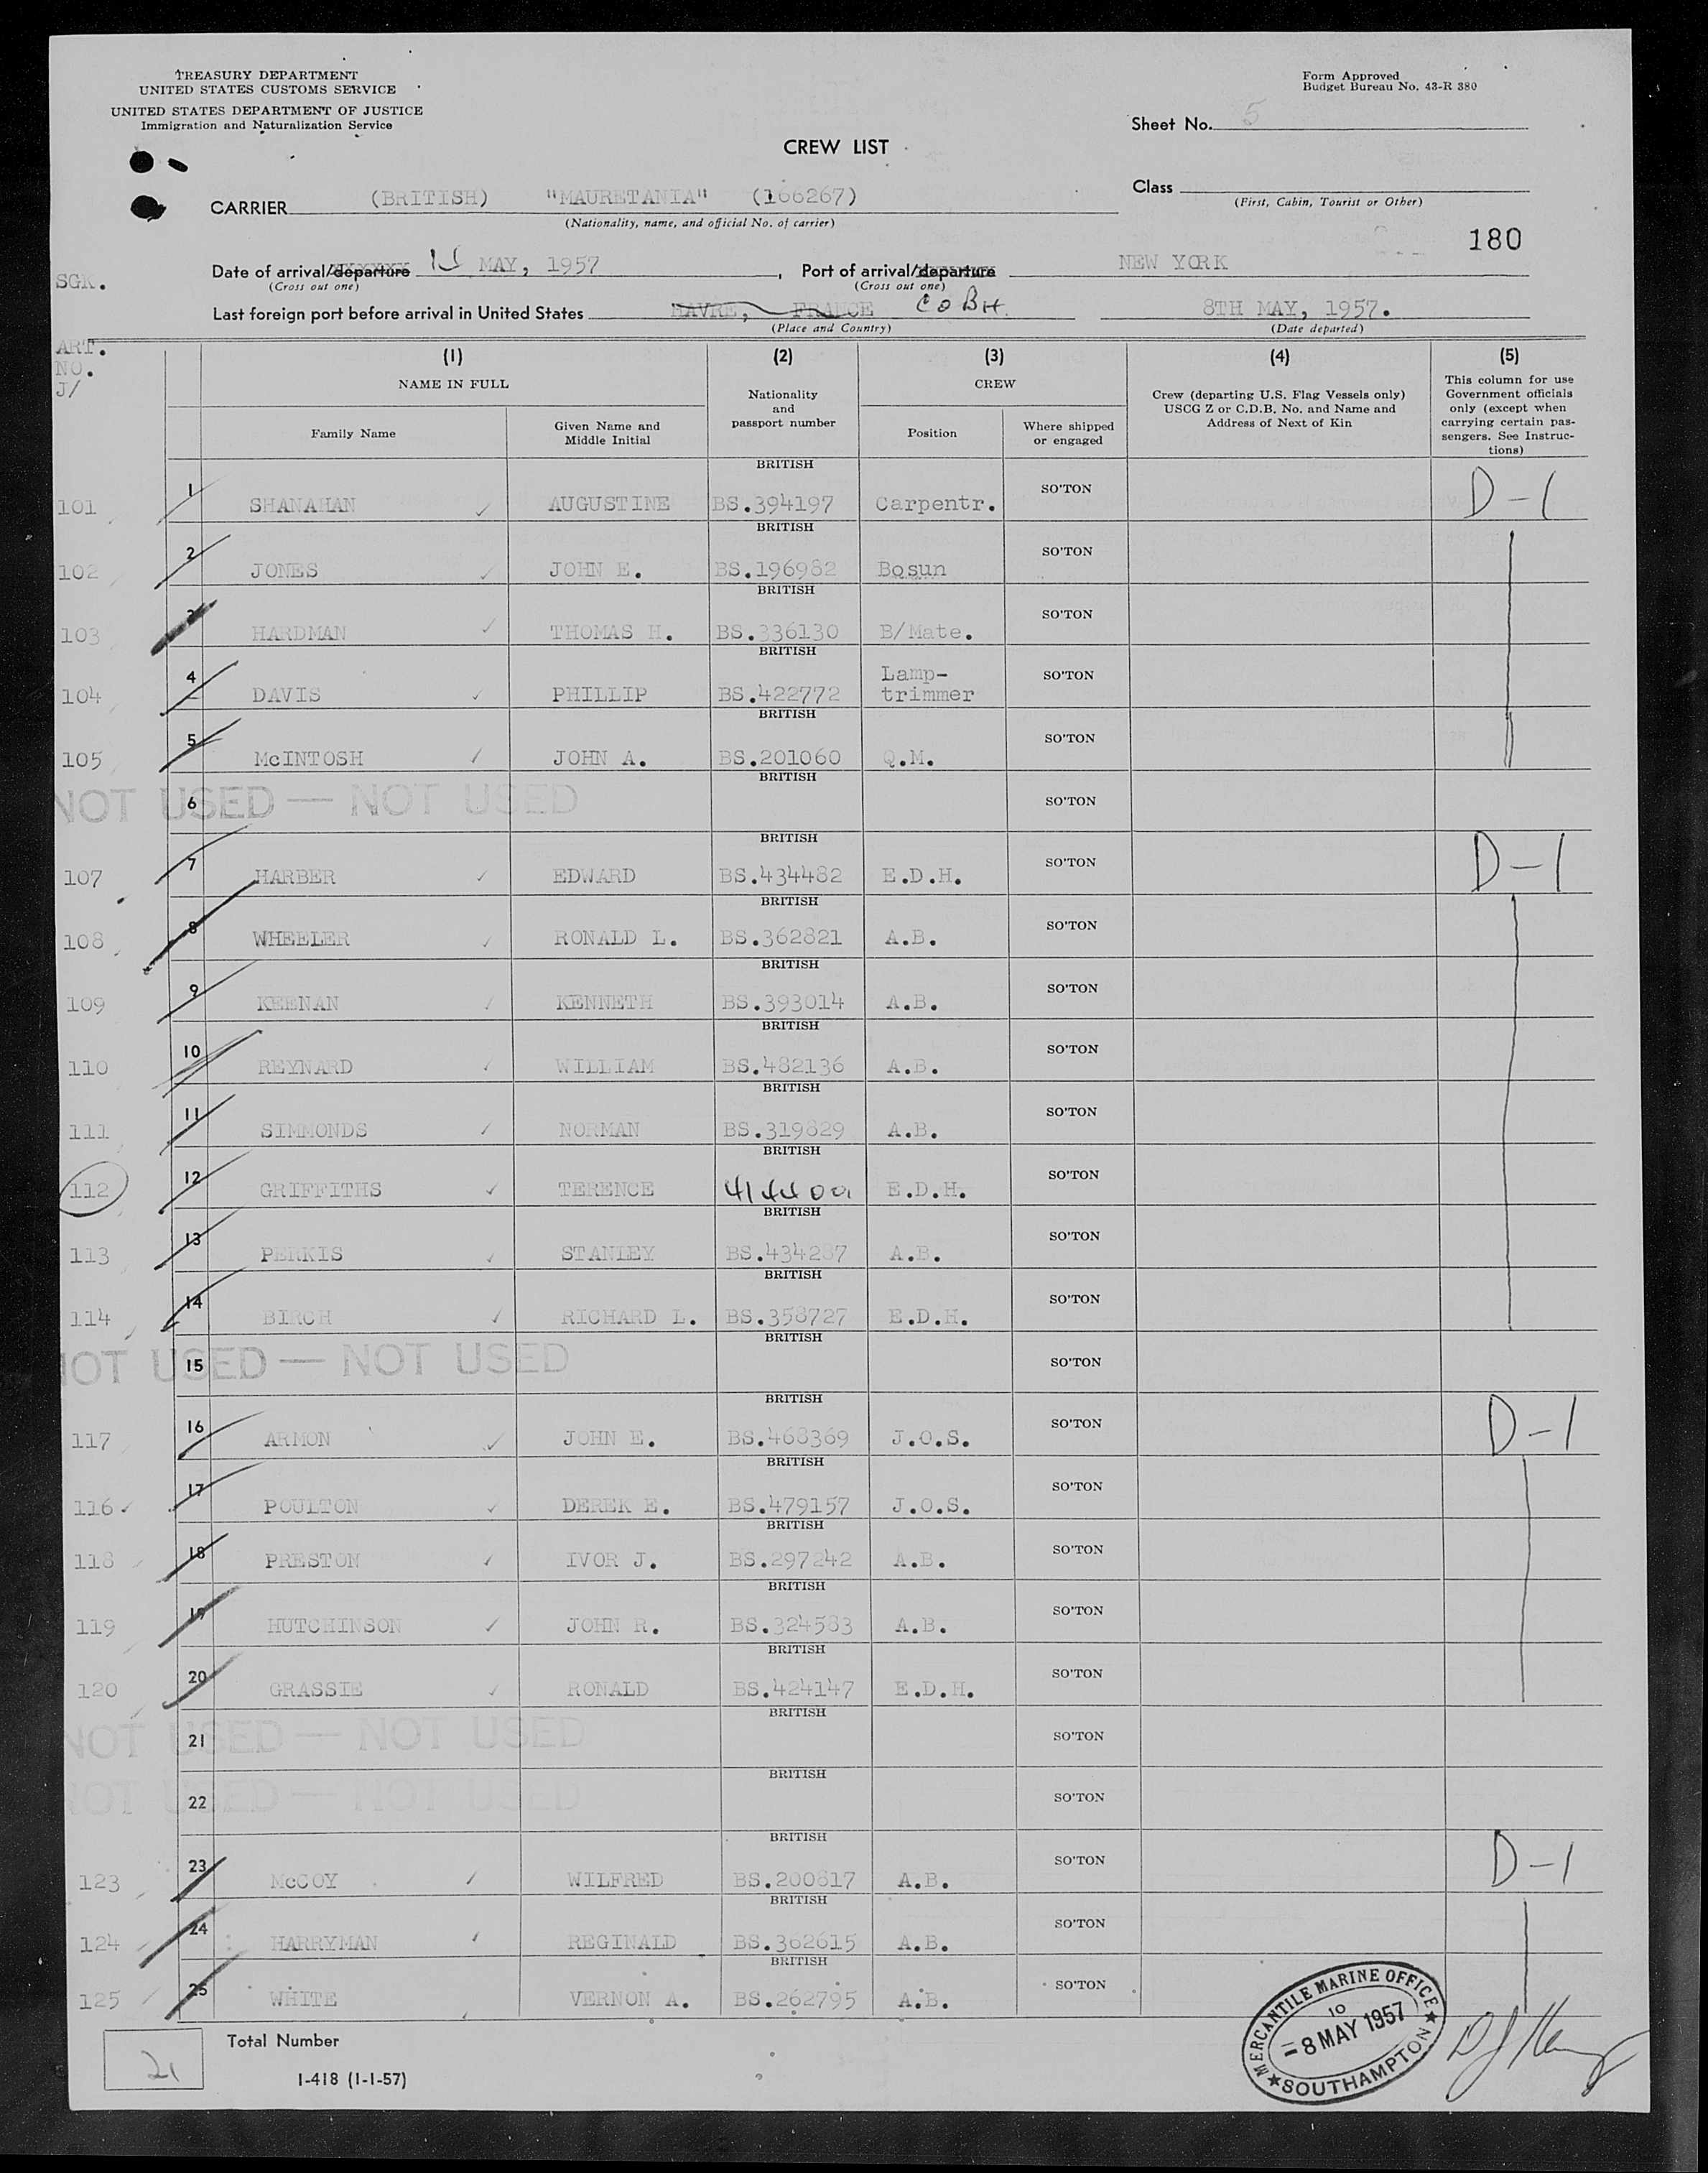 TREASURY DEPARTMENT
UNITED STATES CUSTOMS SERVICE
UNITED STATES DEPARTMENT OF JUSTICE
Immigration and Naturalization Service
Form Approved
Budget Bureau No. 43-R 380
Sheet No. 5
CREW LIST
Class
(First, Cabin, Tourist or Other)
CARRIER (BRITISH) "MAURETANIA" (166267)
(Nationality, name, and official No. of carrier)
180
SGK.
Date of arrival/departure MAY, 1957, Port of arrival/departure NEW YORK
(Cross out one) (Cross out one)
Last foreign port before arrival in United States HAVRE, FRANCE COBH 8TH MAY, 1957.
(Place and Country) (Date departed)
ART.
NO.
J/
(1) (2) (3) (4) (5)
NAME IN FULL
Family Name
Given Name and
Middle Initial
Nationality
and
passport number
CREW
Position
Where shipped
or engaged
Crew (departing U.S. Flag Vessels only)
USCG Z or C.D.B. No. and Name and
Address of Next of Kin
This column for use
Government officials
only (except when
carrying certain pas-
sengers. See Instruc-
tions)
BRITISH
101 1 SHANAHAN ✓ AUGUSTINE BS.394197 Carpentr. SO'TON D-1
BRITISH
102 2 JONES ✓ JOHN E. BS.196982 Bosun SO'TON
BRITISH
103 3 HARDMAN ✓ THOMAS H. BS.336130 B/Mate. SO'TON
BRITISH
104 4 DAVIS ✓ PHILLIP BS.422772 Lamp-
trimmer SO'TON
BRITISH
105 5 McINTOSH ✓ JOHN A. BS.201060 Q.M. SO'TON
BRITISH
NOT USED — NOT USED 6 SO'TON
BRITISH
107 7 HARBER ✓ EDWARD BS.434482 E.D.H. SO'TON D-1
BRITISH
108 8 WHEELER ✓ RONALD L. BS.362821 A.B. SO'TON
BRITISH
109 9 KEENAN ✓ KENNETH BS.393014 A.B. SO'TON
BRITISH
110 10 REYNARD ✓ WILLIAM BS.482136 A.B. SO'TON
BRITISH
111 11 SIMMONDS ✓ NORMAN BS.319829 A.B. SO'TON
BRITISH
112 12 GRIFFITHS ✓ TERENCE E.D.H. SO'TON
BRITISH
113 13 PERKIS ✓ STANLEY BS.434287 A.B. SO'TON
BRITISH
114 14 BIRCH ✓ RICHARD L. BS.358727 E.D.H. SO'TON
BRITISH
NOT USED — NOT USED 15 SO'TON
BRITISH
117 16 ARMON ✓ JOHN E. BS.468369 J.O.S. SO'TON D-1
BRITISH
116 ✓ 17 POULTON ✓ DEREK E. BS.479157 J.O.S. SO'TON
BRITISH
118 18 PRESTON ✓ IVOR J. BS.297242 A.B. SO'TON
BRITISH
119 19 HUTCHINSON ✓ JOHN R. BS.324583 A.B. SO'TON
BRITISH
120 20 GRASSIE ✓ RONALD BS.424147 E.D.H. SO'TON
BRITISH
NOT USED — NOT USED 21 SO'TON
BRITISH
NOT USED — NOT USED 22 SO'TON
BRITISH
123 23 McCOY ✓ WILFRED BS.200817 A.B. SO'TON D-1
BRITISH
124 24 HARRYMAN REGINALD BS.362615 A.B. SO'TON
BRITISH
125 25 WHITE VERNON A. BS.262795 A.B. SO'TON
21 Total Number
I-418 (1-1-57)
MERCANTILE MARINE OFFICE
10
-8 MAY 1957
★ SOUTHAMPTON ★